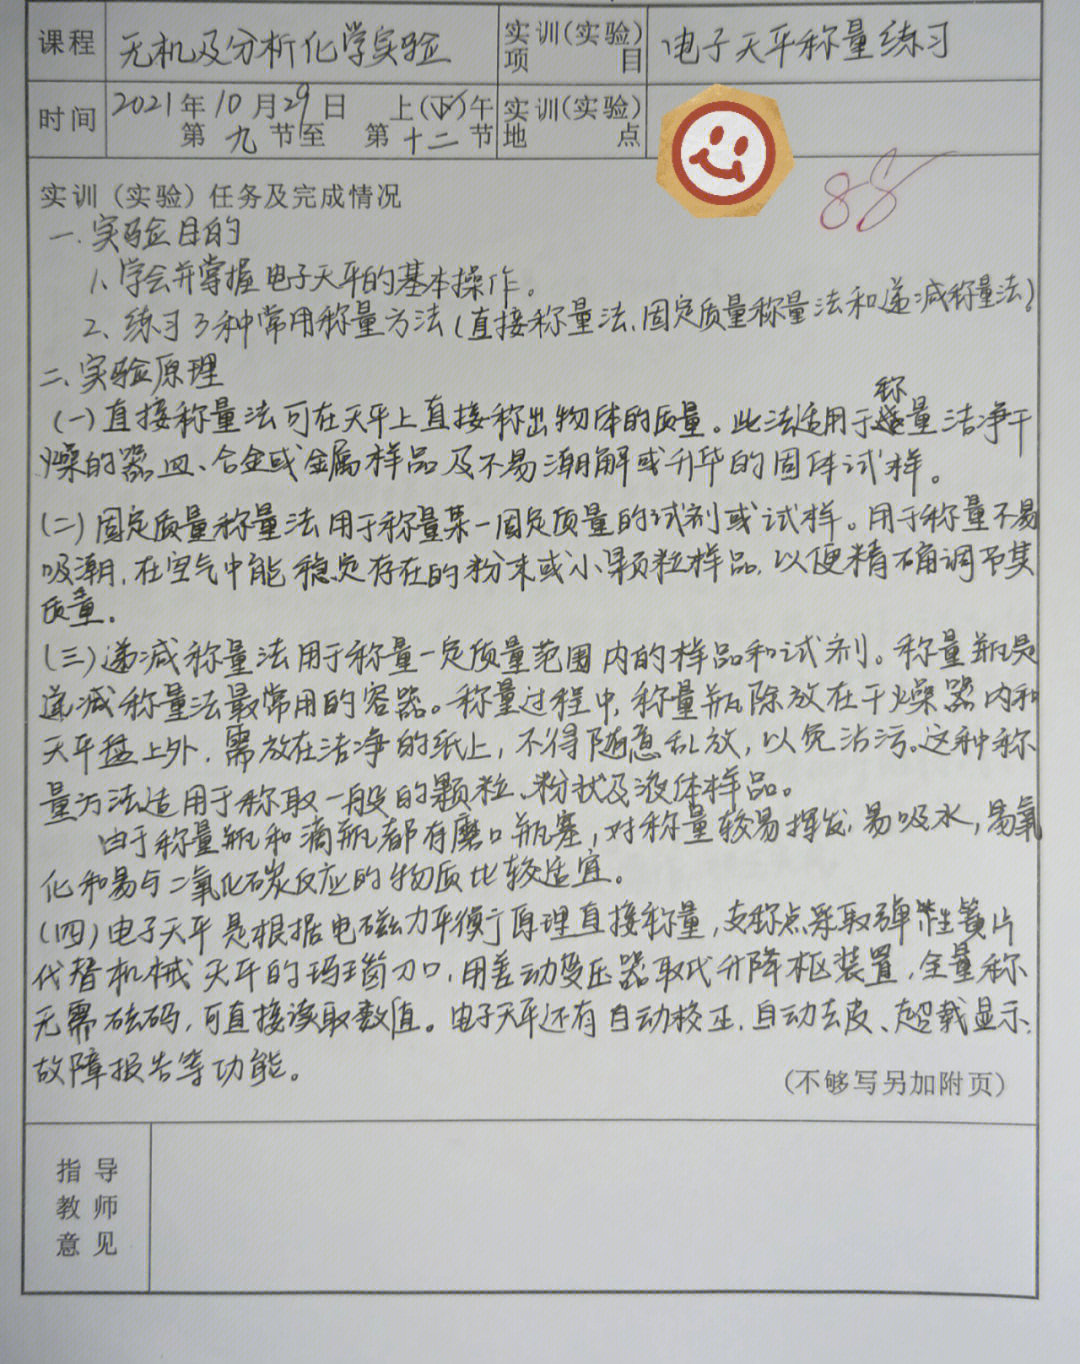 课程 无机及分析化学实验 实训(实验)项目 电子天平称量练习
时间 2021年10月29日 上(下)午 第九节至第十二节 实训(实验)地点
88
实训（实验）任务及完成情况
一.实验目的
1、学会并掌握电子天平的基本操作。
2、练习3种常用称量方法(直接称量法、固定质量称量法和递减称量法)
二、实验原理
(一)直接称量法可在天平上直接称出物体的质量。此法适用于称量洁净干
燥的器皿、合金或金属样品及不易潮解或升华的固体试样。
(二)固定质量称量法用于称量某一固定质量的试剂或试样。用于称量不易
吸潮,在空气中能稳定存在的粉末或小颗粒样品,以便精确调节其
质量。
(三)递减称量法用于称量一定质量范围内的样品和试剂。称量瓶是
递减称量法最常用的容器。称量过程中,称量瓶除放在干燥器内和
天平盘上外,需放在洁净的纸上,不得随意乱放,以免沾污。这种称
量方法适用于称取一般的颗粒、粉状及液体样品。
由于称量瓶和滴瓶都有磨口瓶塞,对称量较易挥发,易吸水,易氧
化和易与二氧化碳反应的物质比较适宜。
(四)电子天平是根据电磁力平衡原理直接称量,支称点采取弹性簧片
代替机械天平的玛瑙刀口,用差动变压器取代升降枢装置,全量称
无需砝码,可直接读取数值。电子天平还有自动校正、自动去皮、超载显示、
故障报告等功能。
(不够写另加附页)
指导
教师
意见